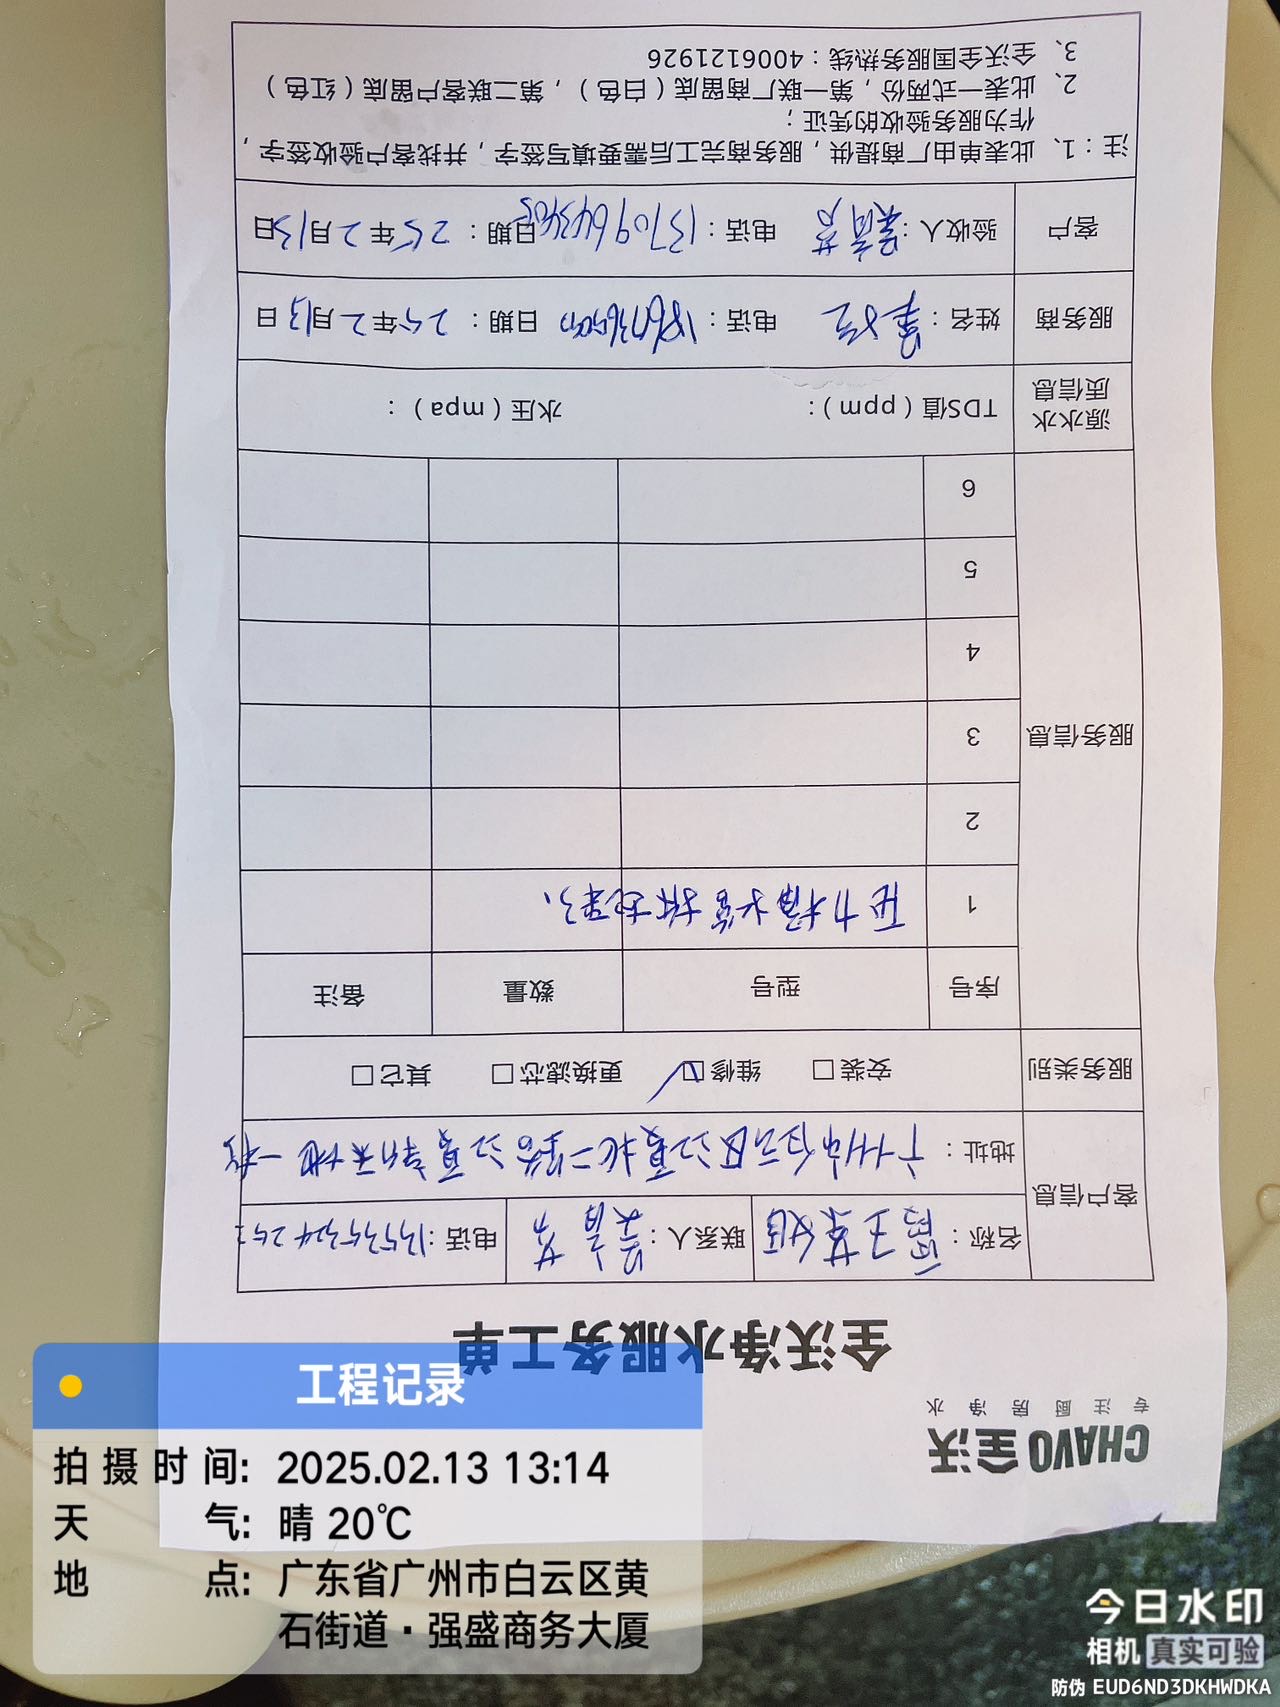 CHAVO 全沃
专注厨房净水
全沃净水服务工单
客户信息 名称： 联系人： 电话：
地址：广州市白云区江夏北二路江夏新天地一栋
服务类别 安装□ 维修☑ 更换滤芯□ 其它□
服务信息 序号 型号 数量 备注
1 压力桶水管拆起来了、
2
3
4
5
6
源水水质信息 TDS值（ppm）： 水压（mpa）：
服务商 姓名： 电话： 日期：25年2月13日
客户 验收人： 电话：13709643405 日期：25年2月13日
注：1、此表单由厂商提供，服务商完工后需要填写签字，并找客户验收签字，
作为服务验收的凭证；
2、此表一式两份，第一联厂商留底（白色），第二联客户留底（红色）
3、全沃全国服务热线：4006121926
工程记录
拍摄时间: 2025.02.13 13:14
天气: 晴 20℃
地点: 广东省广州市白云区黄
石街道·强盛商务大厦
今日水印
相机 真实可验
防伪 EUD6ND3DKHWDKA